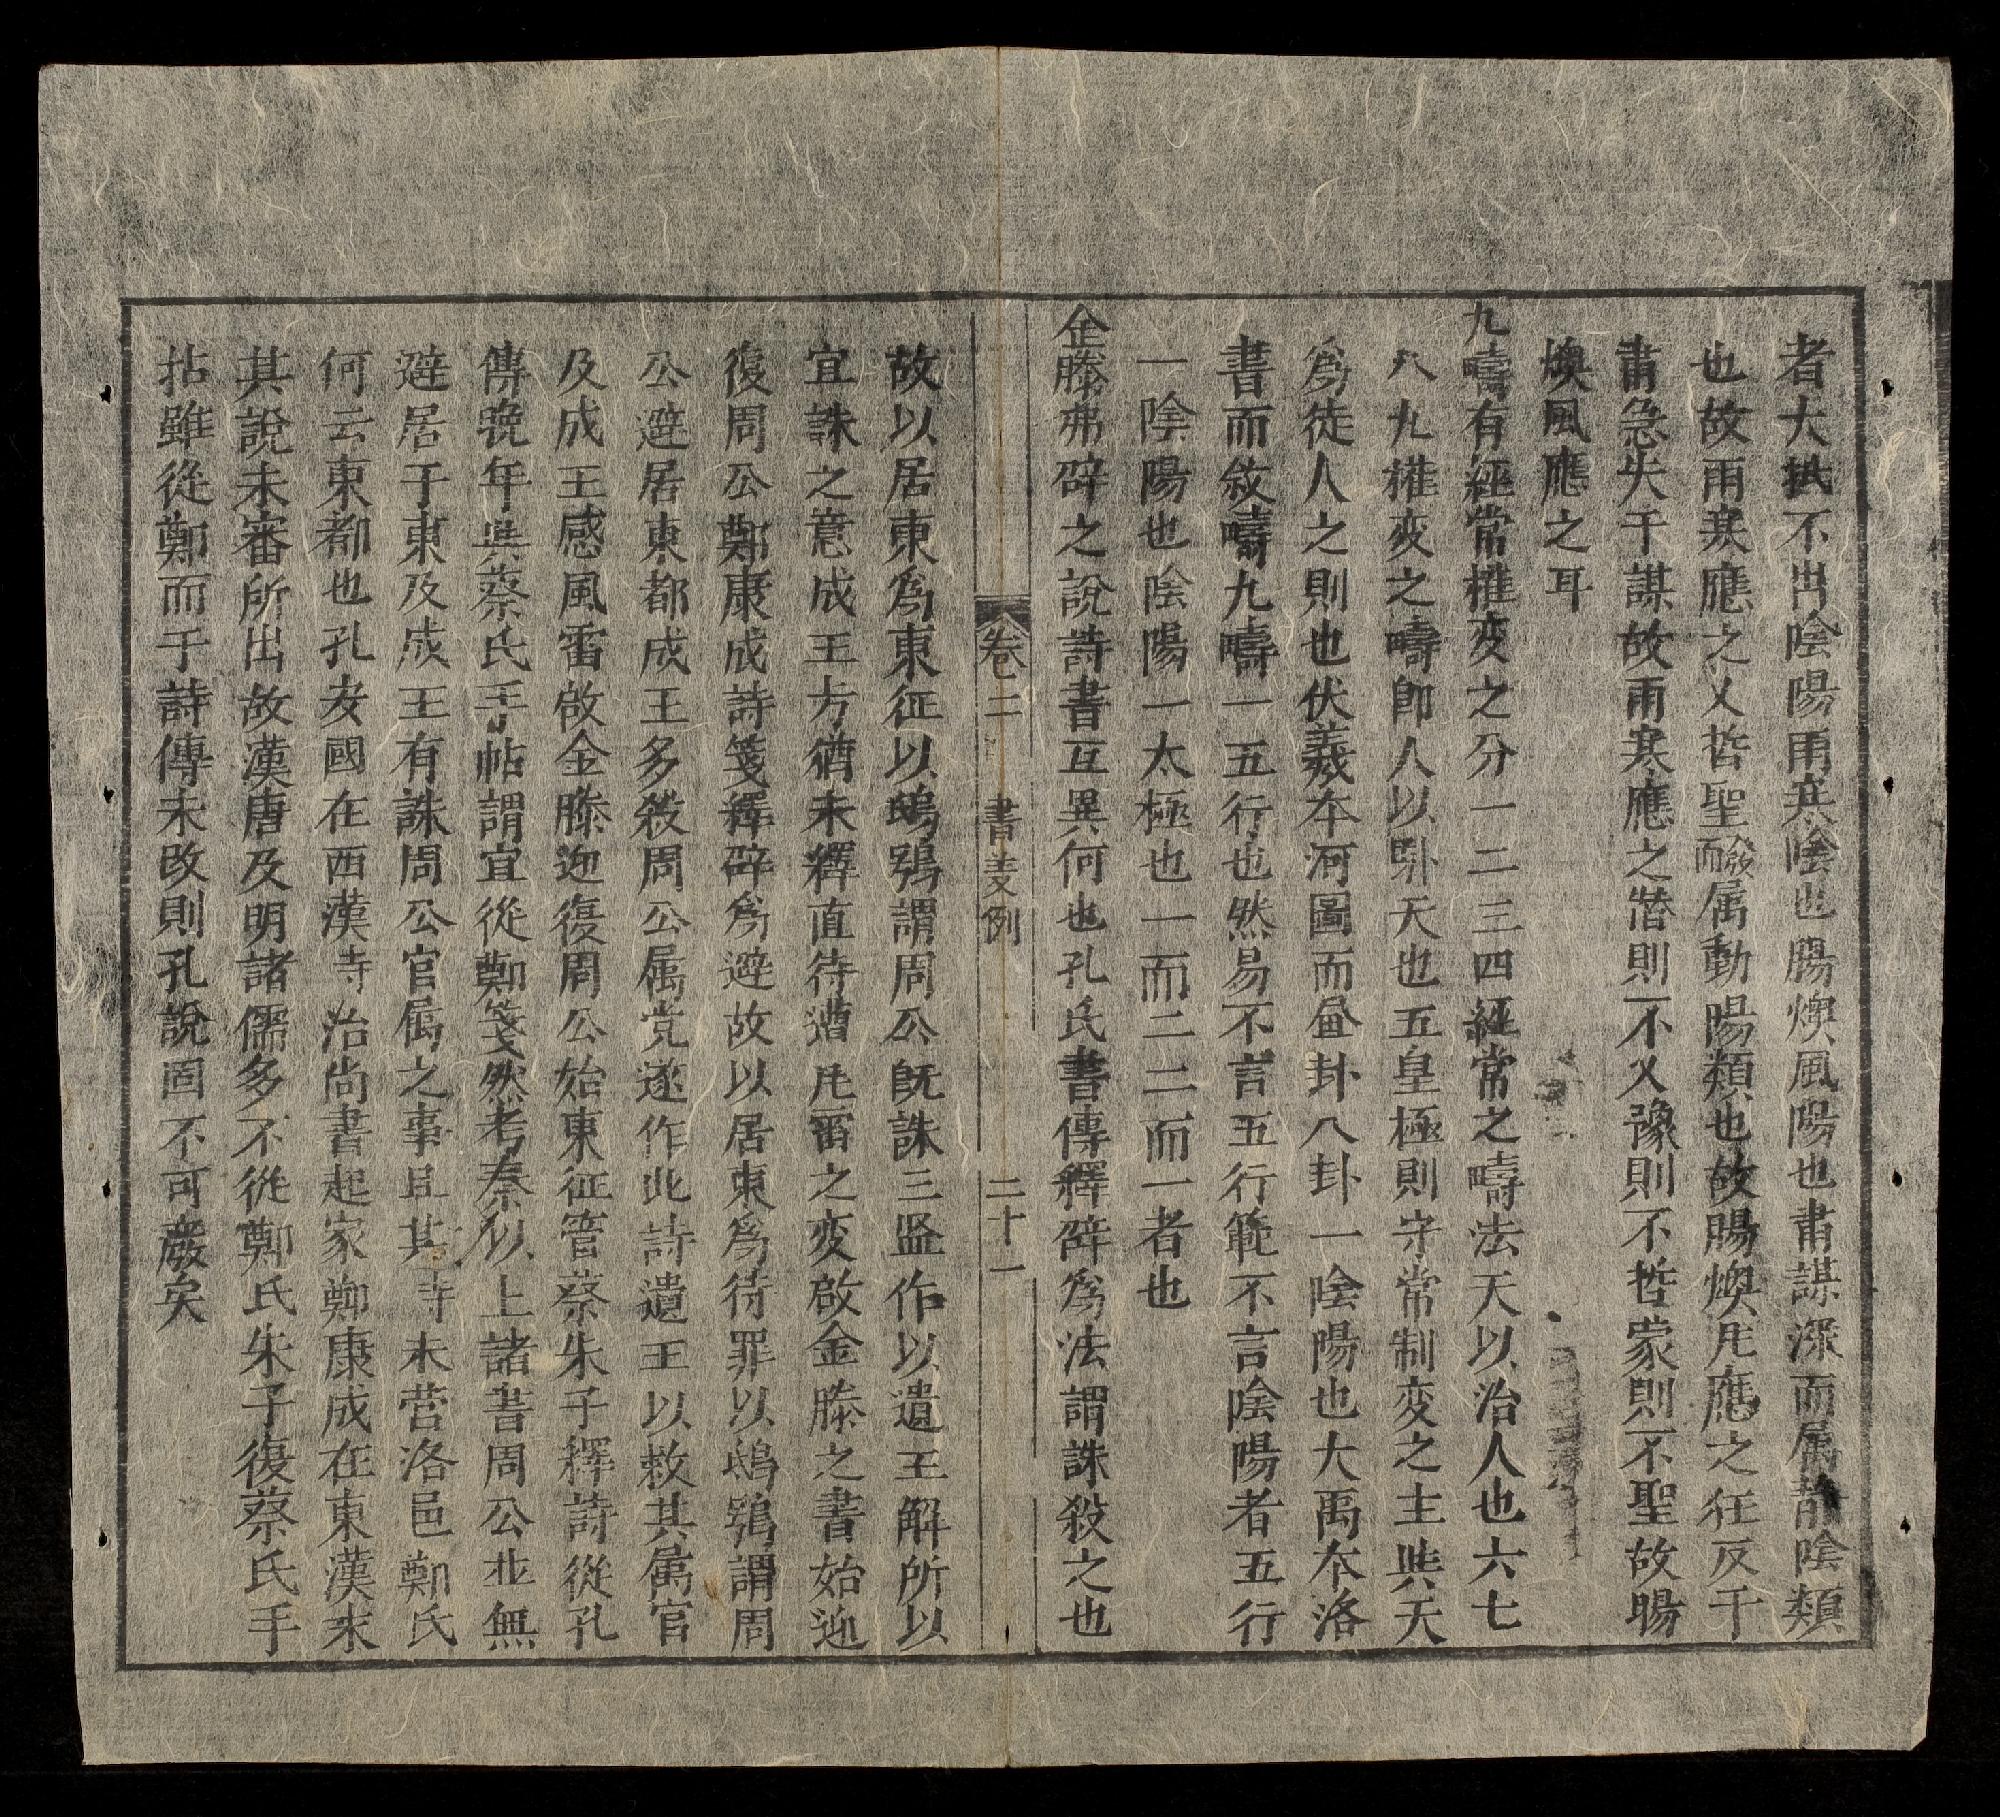 者大抵不出陰陽雨寒陰也暘燠風陽也肅謀深而属静陰類
也故雨寒應之乂哲聖而㪘属動陽類也故暘燠風應之狂反于
肅急失于謀故雨寒應之僭則不乂豫則不哲蒙則不聖故暘
燠風應之耳
九疇有經常權变之分一二三四經常之疇法天以治人也六七
八九權变之疇即人以驗天也五皇極則守常制变之主與天
爲徒人之則也伏羲本河圖而畫卦八卦一陰陽也大禹本洛
書而敘疇九疇一五行也然易不言五行範不言陰陽者五行
一陰陽也陰陽一太極也一而二二而一者也
金縢弗辟之說詩書互異何也孔氏書傳釋辟爲法謂誅殺之也
卷二 書義例 二十一
故以居東爲東征以鴟鴞謂周公既誅三监作以遺王解所以
宜誅之意成王方猶未釋直待遭風雷之变啟金縢之書始迎
復周公鄭康成詩箋釋辟爲避故以居東爲待罪以鴟鴞謂周
公避居東都成王多殺周公属党遂作此詩遺王以救其属官
及成王感風雷啟金縢迎復周公始東征管蔡朱子釋詩從孔
傳晚年與蔡氏手帖謂宜從鄭箋然考秦以上諸書周公並無
避居于東及成王有誅周公官属之事且其時未营洛邑鄭氏
何云東都也孔安國在西漢時治尚書起家鄭康成在東漢末
其說未審所出故漢唐及明諸儒多不從鄭氏朱子復蔡氏手
拈雖從鄭而于詩傳未改則孔說固不可廢矣